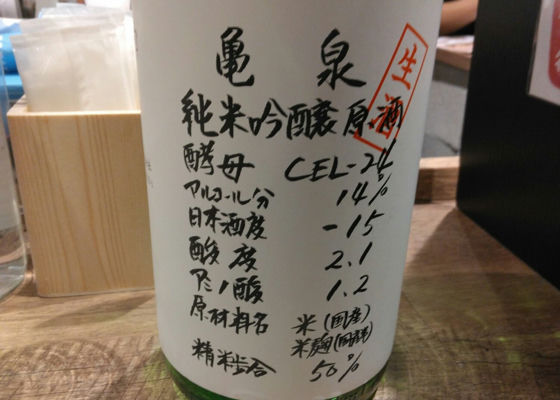 亀泉
生酒
純米吟醸原酒
酵母 CEL-24
アルコール分 14%
日本酒度 -15
酸度 2.1
アミノ酸 1.2
原材料名 米(国産)
米麹(国産米)
精米歩合 50%